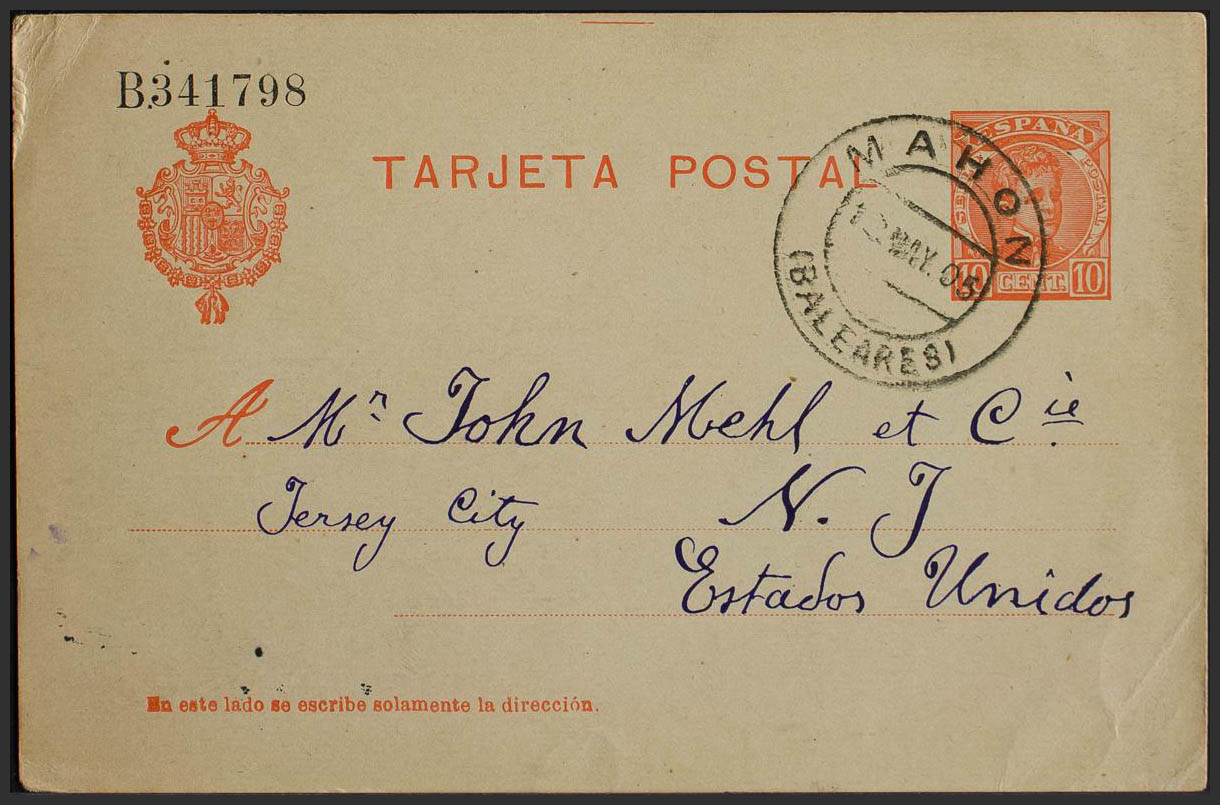 B.341798
TARJETA POSTAL
ESPAÑA
POSTAL
10 CENT. 10
MAHON
MAY. 05
(BALEARES)
A Mr John Mehl et Cie
Jersey City N. J
Estados Unidos
En este lado se escribe solamente la dirección.